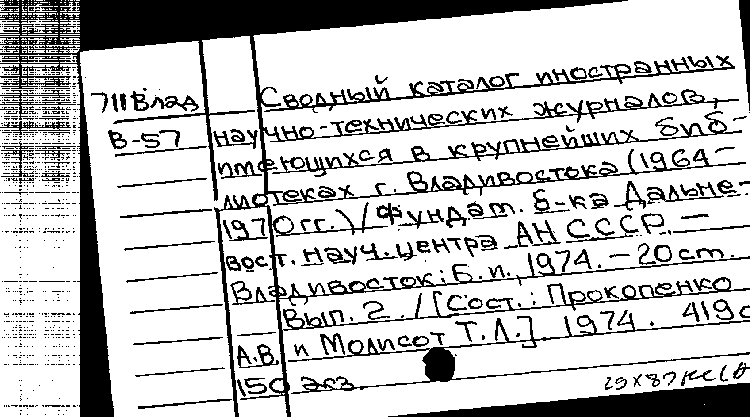 711Влад Сводный каталог иностранных
В-57 научно-технических журналов,
имеющихся в крупнейших биб-
лиотеках г. Владивостока (1964-
1970гг.)/Фундам. б-ка Дальне-
вост. науч. центра АН СССР. -
Владивосток: Б.и., 1974. - 20см.
Вып. 2. /[Сост.: Прокопенко
А.В. и Молисот Т.Л.]. 1974. 419с
150 экз.